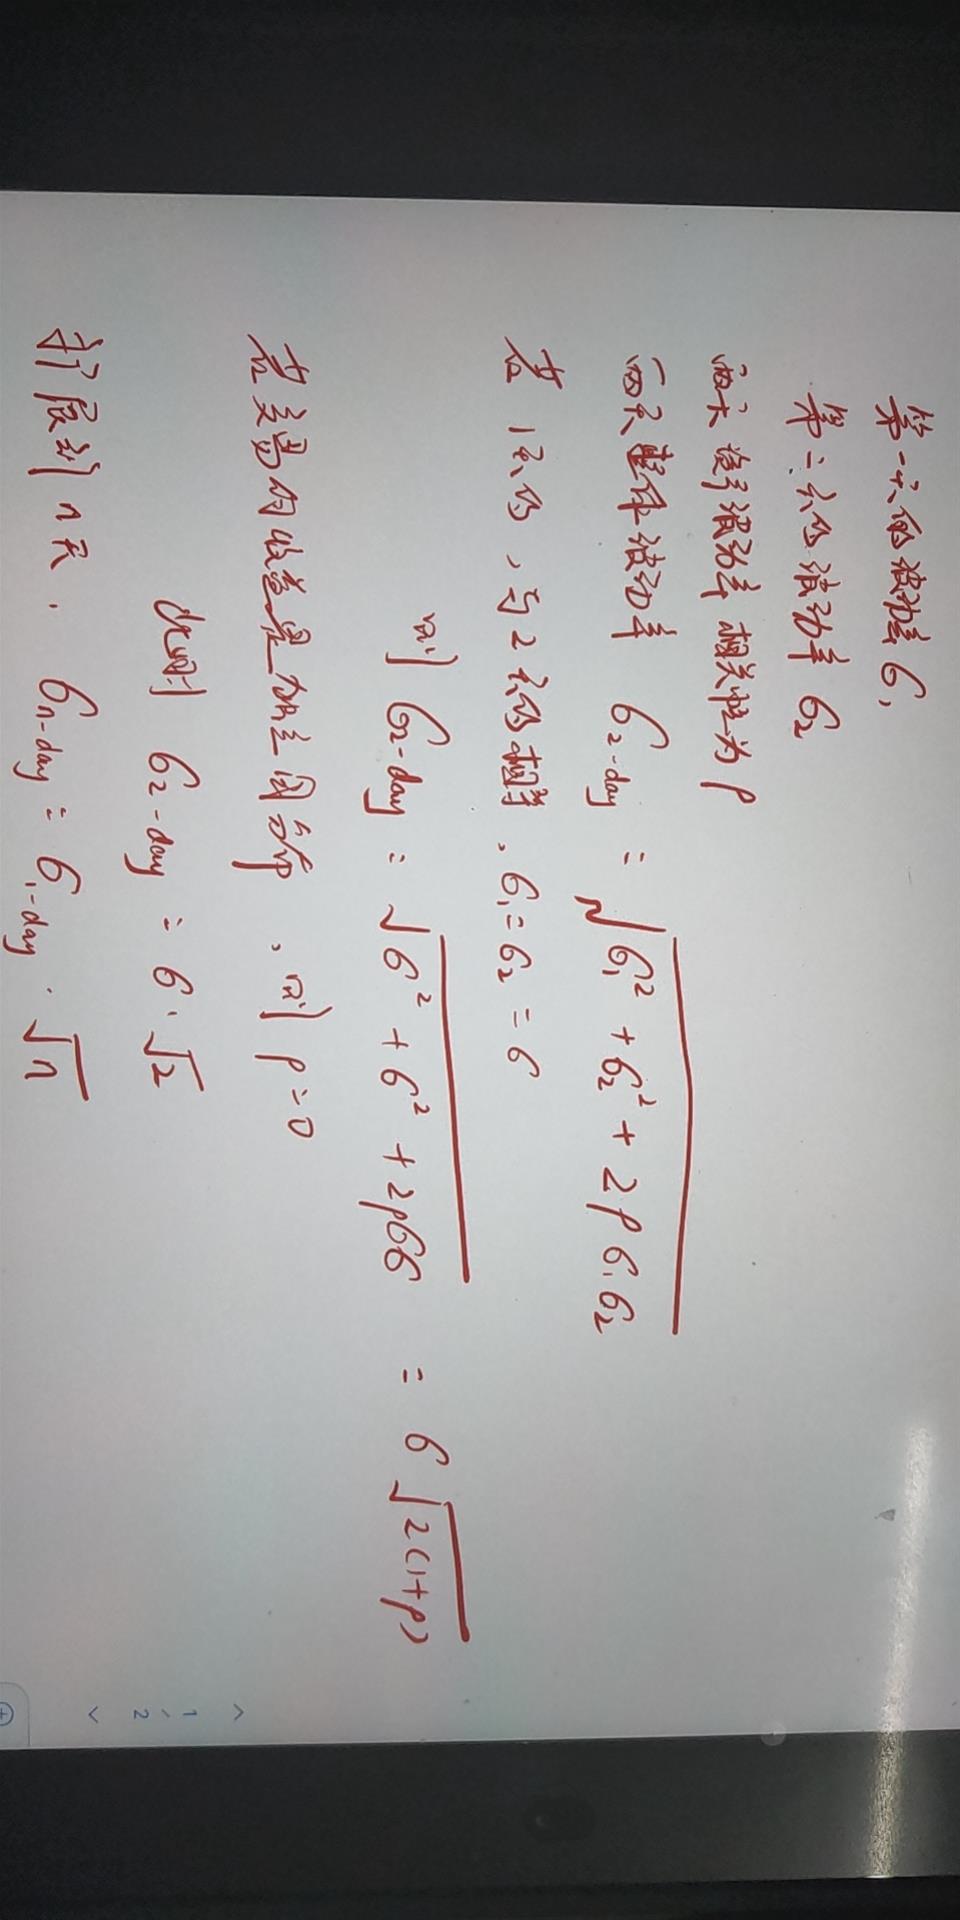 第一天的波动率 σ₁
第二天的波动率 σ₂
两天 波动率 相关性为 ρ
两天整体波动率 σ₂-day = √(σ₁² + σ₂² + 2ρσ₁σ₂)
若 1天的,与2天的相等,σ₁ = σ₂ = σ
则 σ₂-day = √(σ² + σ² + 2ρσσ) = σ√(2(1+ρ))
若交易的收益是独立同分布,则 ρ = 0
此时 σ₂-day = σ·√2
扩展到 n 天. σn-day = σ₁-day · √n
1 / 2